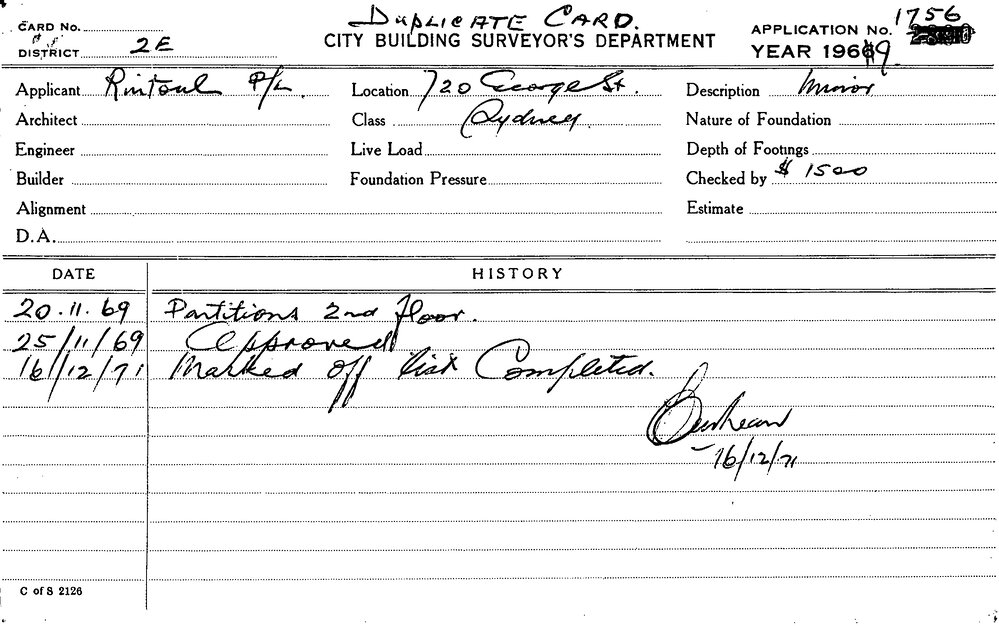 DUPLICATE CARD.
CARD No.
CITY BUILDING SURVEYOR'S DEPARTMENT
APPLICATION No. 1756
DISTRICT 2E
YEAR 1969
Applicant Rintoul P/L Location 720 George St. Description Minor
Architect Class Sydney. Nature of Foundation
Engineer Live Load Depth of Footings
Builder Foundation Pressure Checked by $ 1500
Alignment Estimate
D.A.
DATE HISTORY
20.11.69 Partitions 2nd floor.
25/11/69 Approved
16/12/71 Marked off list Completed.
16/12/71
C of S 2126